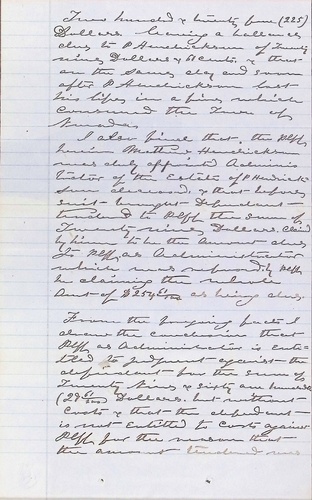 Two hundred & twenty five (225)
Dollars leaving a ballance
due to P Hendrickson of Twenty
nine Dollars & 61 cents. & that
on the same day and soon
after P Hendrickson lost
his life in a fire which
consumed the Town of
Nevada
I also find that the Plff
herein & Hendrickson
was duly appointed Adminis
trator of the Estate of P Hendrick
son deceased. & that before
suit brought Defendant
tendered to Plff the sum of
Twenty nine Dollars. claimed
by him to be the amount due
to Plff as Administrator
which was refused by Plff
he claiming the whole
Amt of as being due.
From the forgoing facts I
draw the conclusion that
Plff as Administrator is enti
tled to judgment against the
defendant for the sum of
Twenty Nine & sixty one hundredths
(29 61/100 Dollars. but without
Costs & that the defendant
is not entitled to Costs against
Plff for the reason that
the amount tendered was